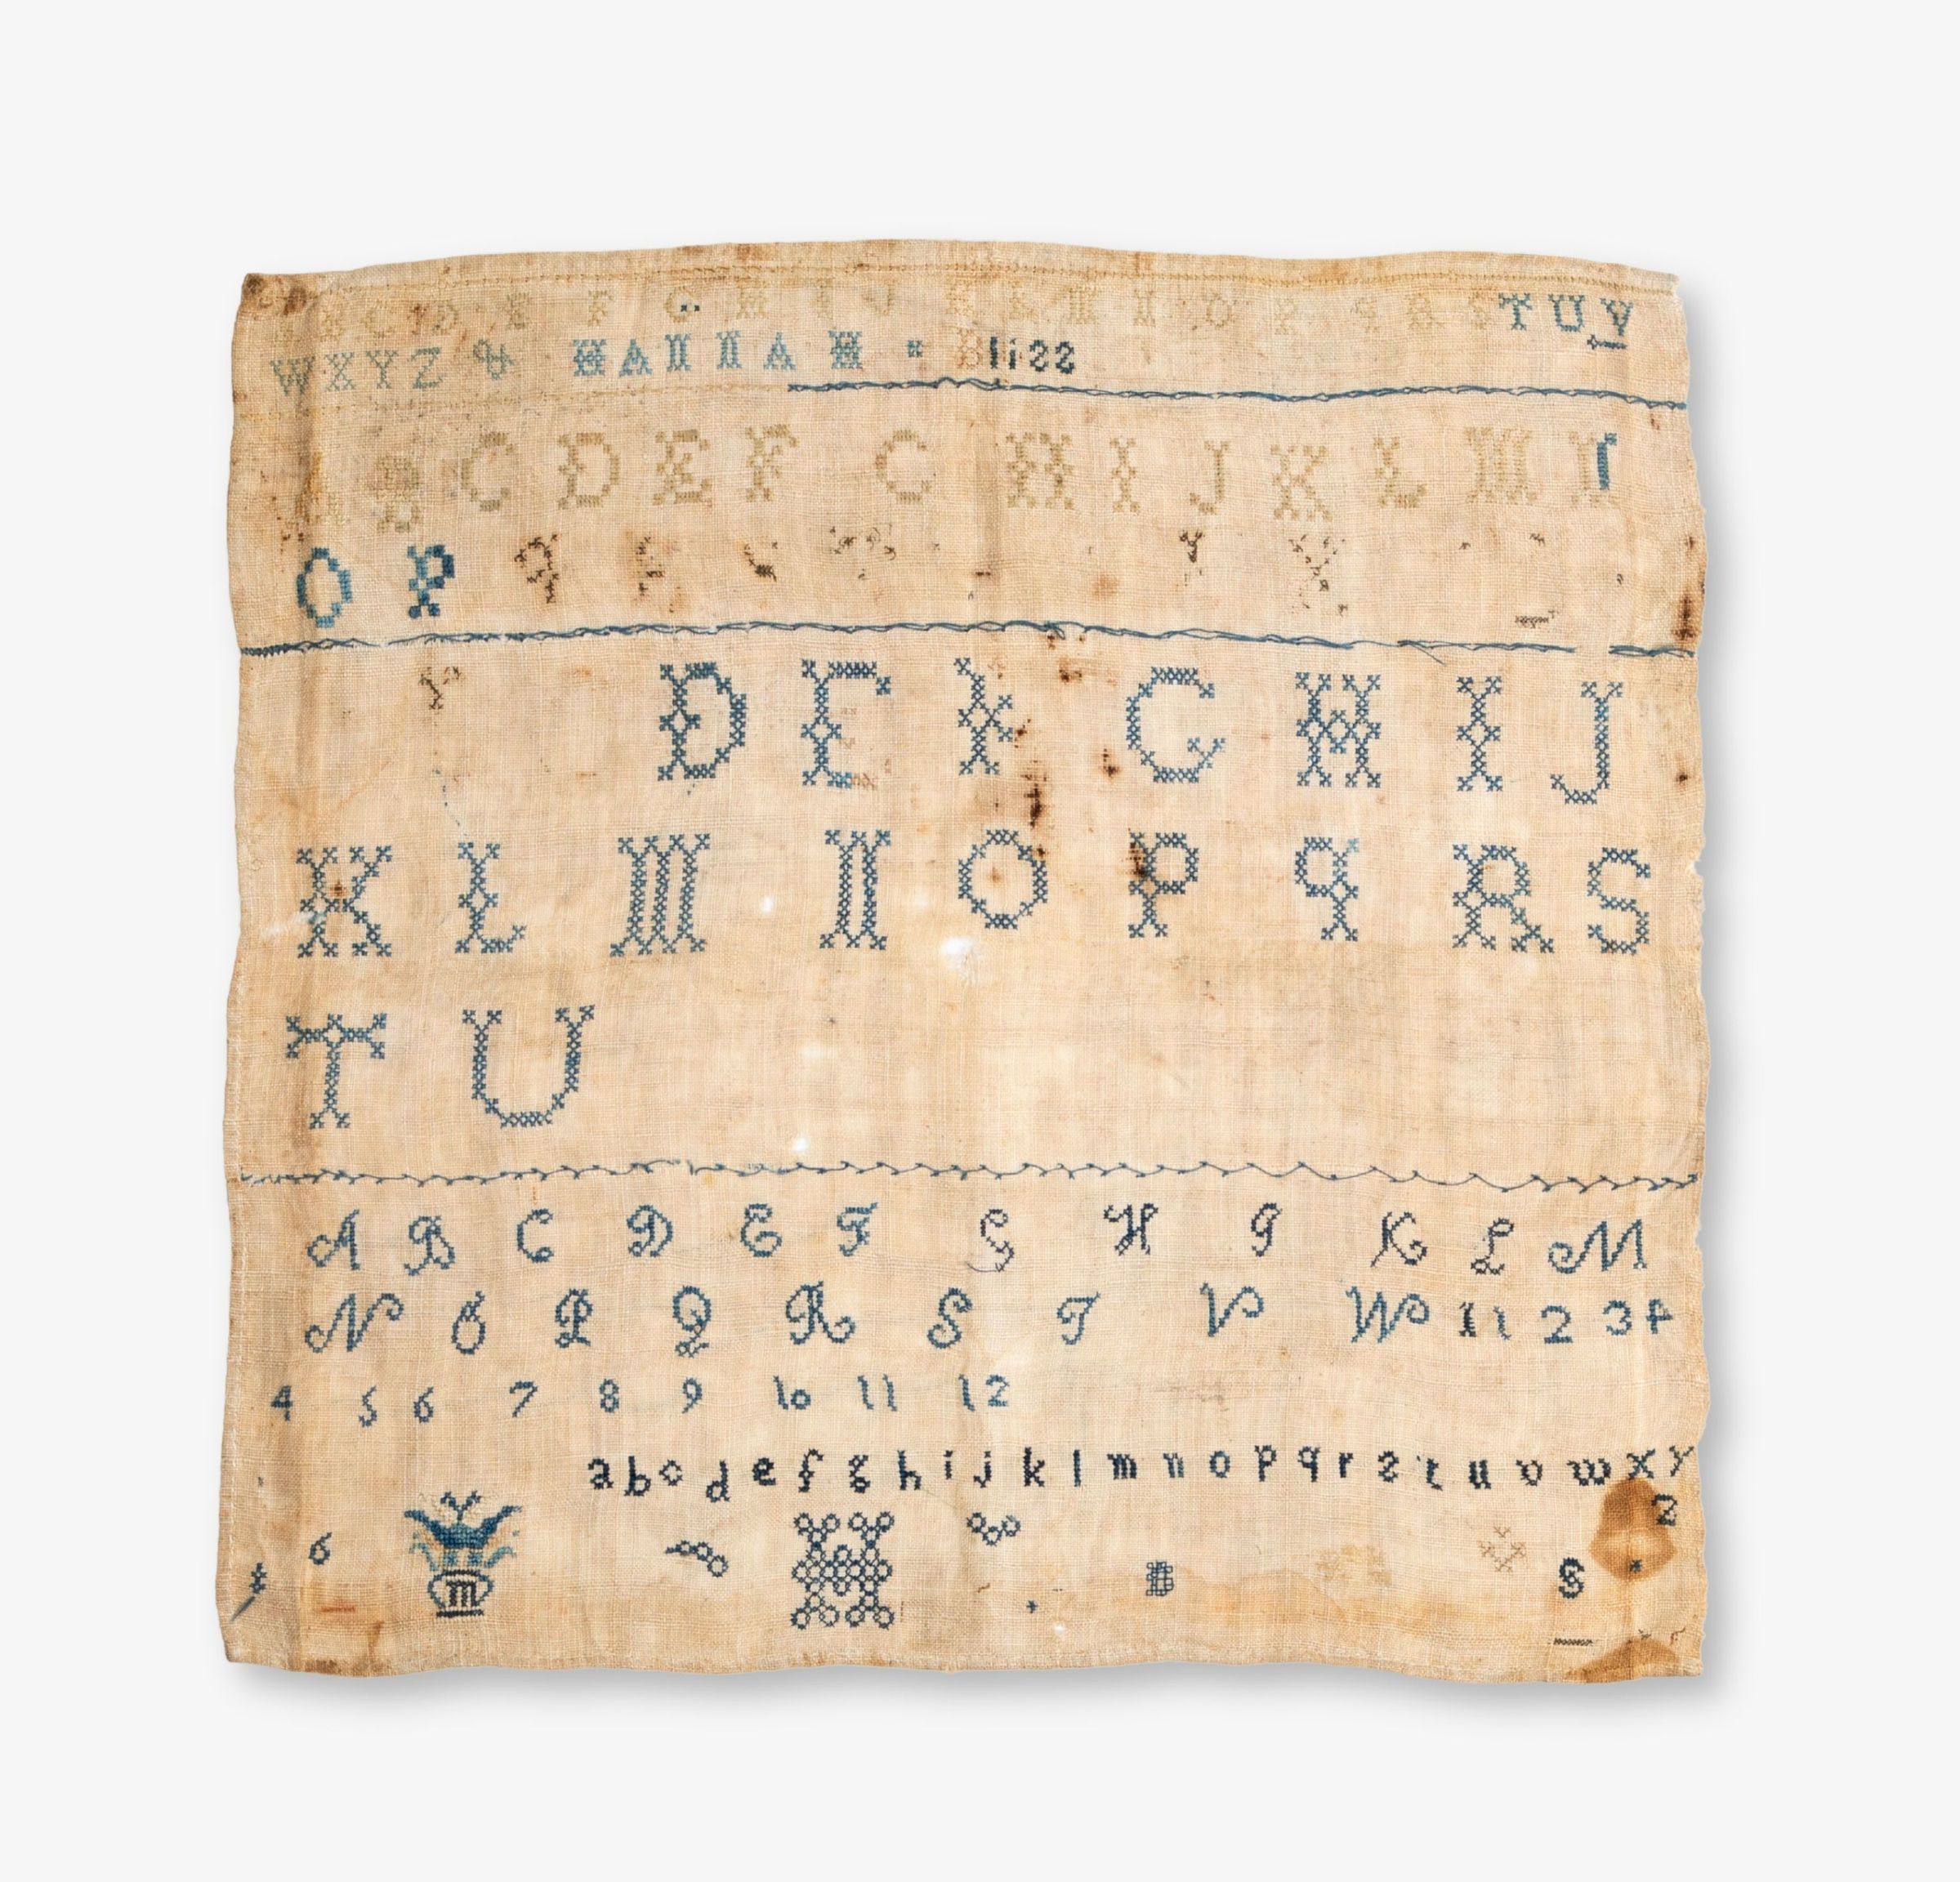 C D E F G H I J K L M N O P Q R S T U V
W X Y Z & HANNAH = Bliss
A B C D E F G H I J K L M N
O P
D E F G H I J
K L M N O P q R S
T U
A B C D E F G H I K L M
N O P Q R S T V W 11 2 3 4
4 5 6 7 8 9 10 11 12
a b c d e f g h i j k l m n o p q r s t u v w x y
z
6 m S